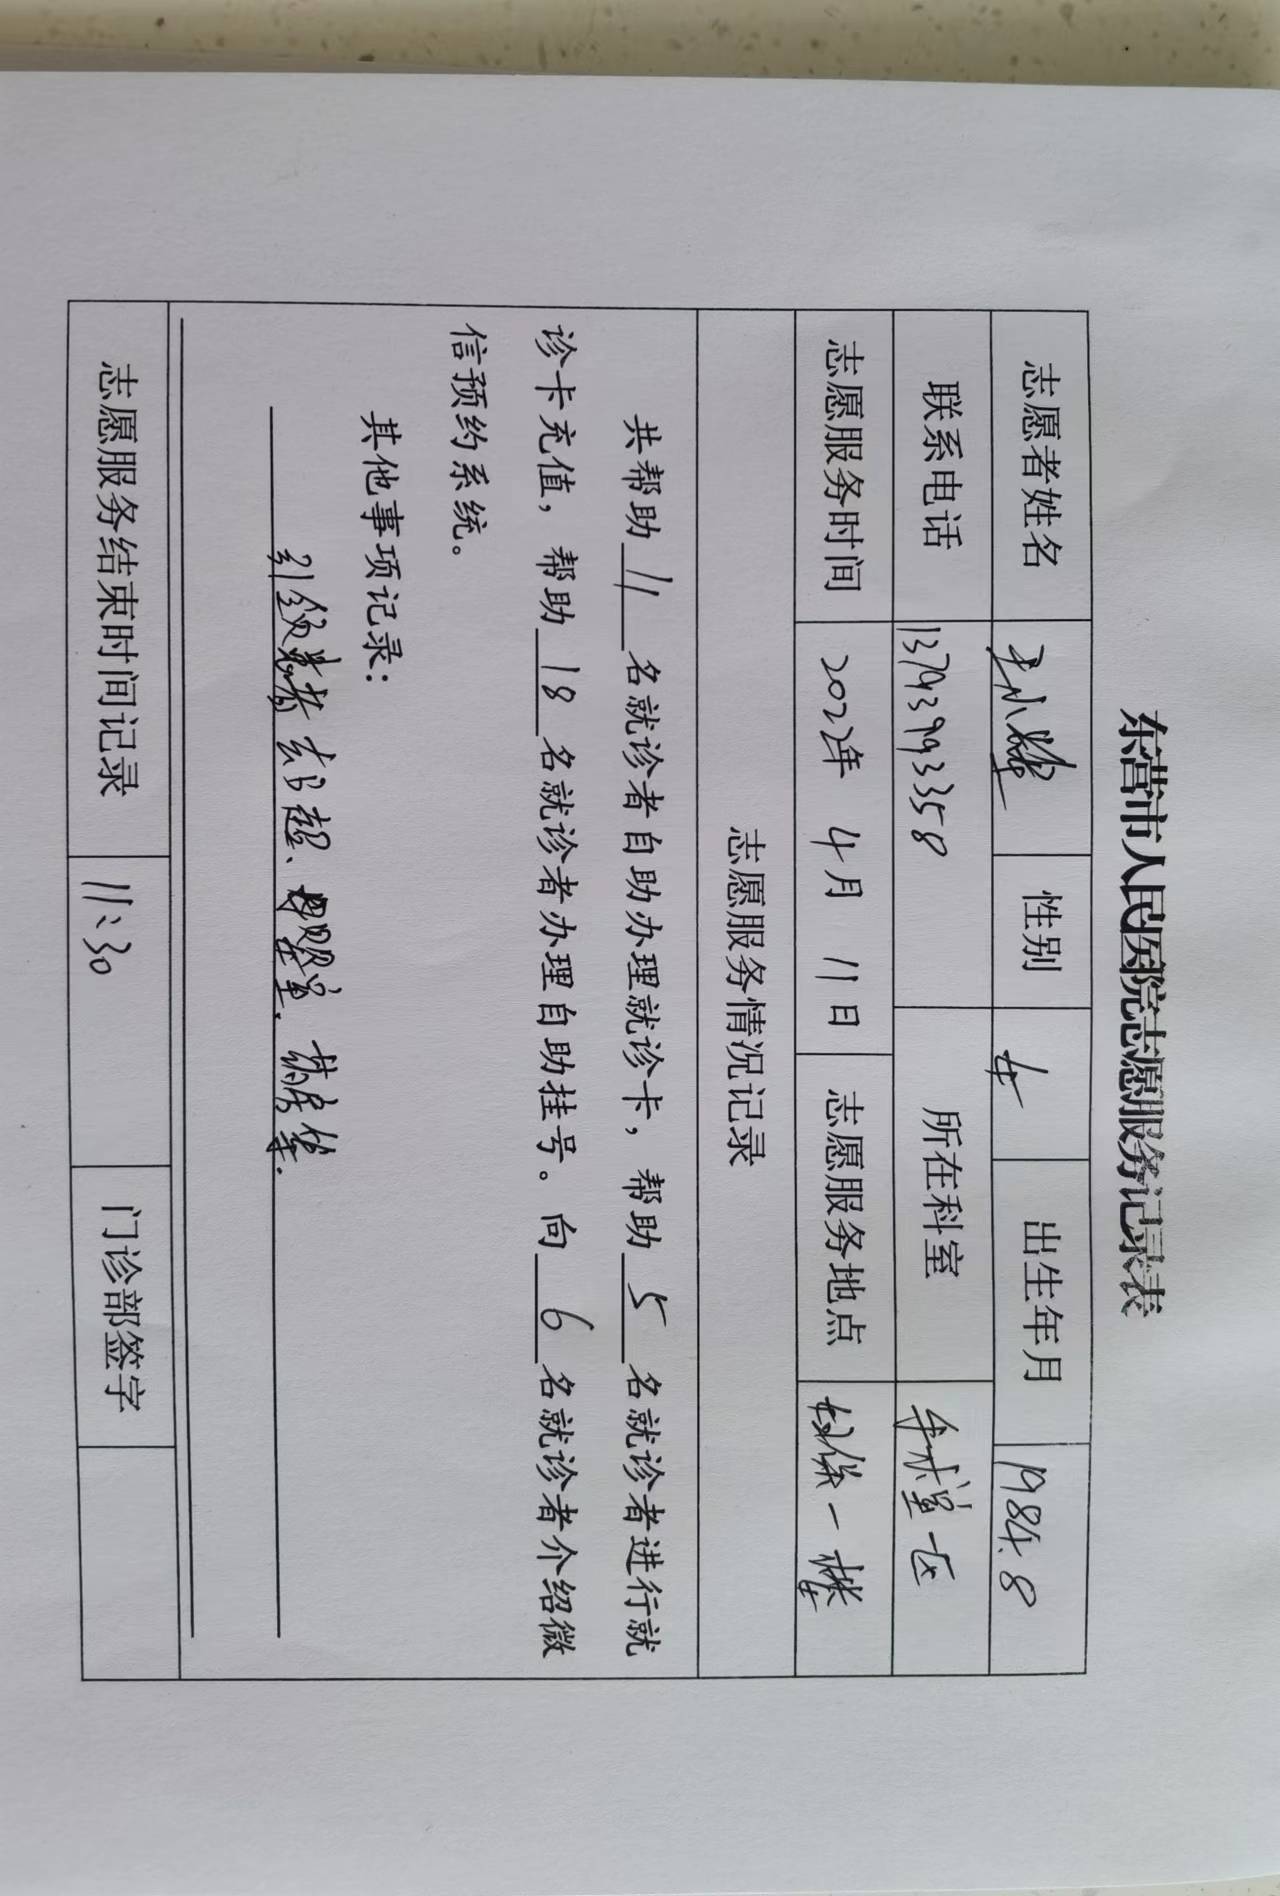 东营市人民医院志愿服务记录表
志愿者姓名 王小 性别 女 出生年月 1984.8
联系电话 13793993358 所在科室 手术室 区
志愿服务时间 2022年 4月 11日 志愿服务地点 妇保一楼
志愿服务情况记录
共帮助 11 名就诊者自助办理就诊卡，帮助 5 名就诊者进行就
诊卡充值，帮助 18 名就诊者办理自助挂号。向 6 名就诊者介绍微
信预约系统。
其他事项记录：
引领患者去B超、 药房等.
志愿服务结束时间记录 11:30 门诊部签字